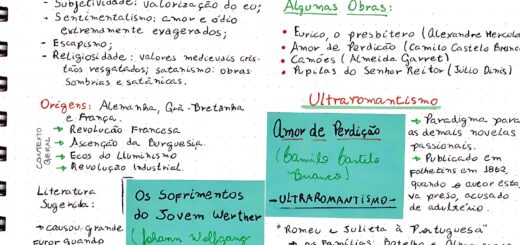 - Subjetividade: valorização do eu;
- Sentimentalismo: amor e ódio
extremamente exagerados;
- Escapismo;
- Religiosidade: valores medievais cris-
tãos resgatados; satanismo: obras
sombrias e satânicas.
Origens: Alemanha, Grã-Bretanha
e França.
CONTEXTO
GERAL
→ Revolução Francesa
→ Ascenção da Burguesia
→ Ecos do Iluminismo
→ Revolução Industrial
Literatura
Sugerida:
→ causou grande
furor quando
Os Sofrimentos
do Jovem Werther
(Johann Wolfgang
Algumas Obras:
• Eurico, o presbítero (Alexandre Hercula
• Amor de Perdição (Camilo Castelo Branc
• Camões (Almeida Garret)
• Pupilas do Senhor Reitor (Júlio Dinis)
Ultraromantismo
Amor de Perdição
(Camilo Castelo
Branco)
- ULTRAROMANTISMO -
→ Paradigma para
as demais novelas
passionais.
→ Publicado em
folhetins em 1862,
quando o autor esta
va preso, acusado
de adultério.
"Romeu e Julieta à Portuguesa"
→ as famílias Botelho e